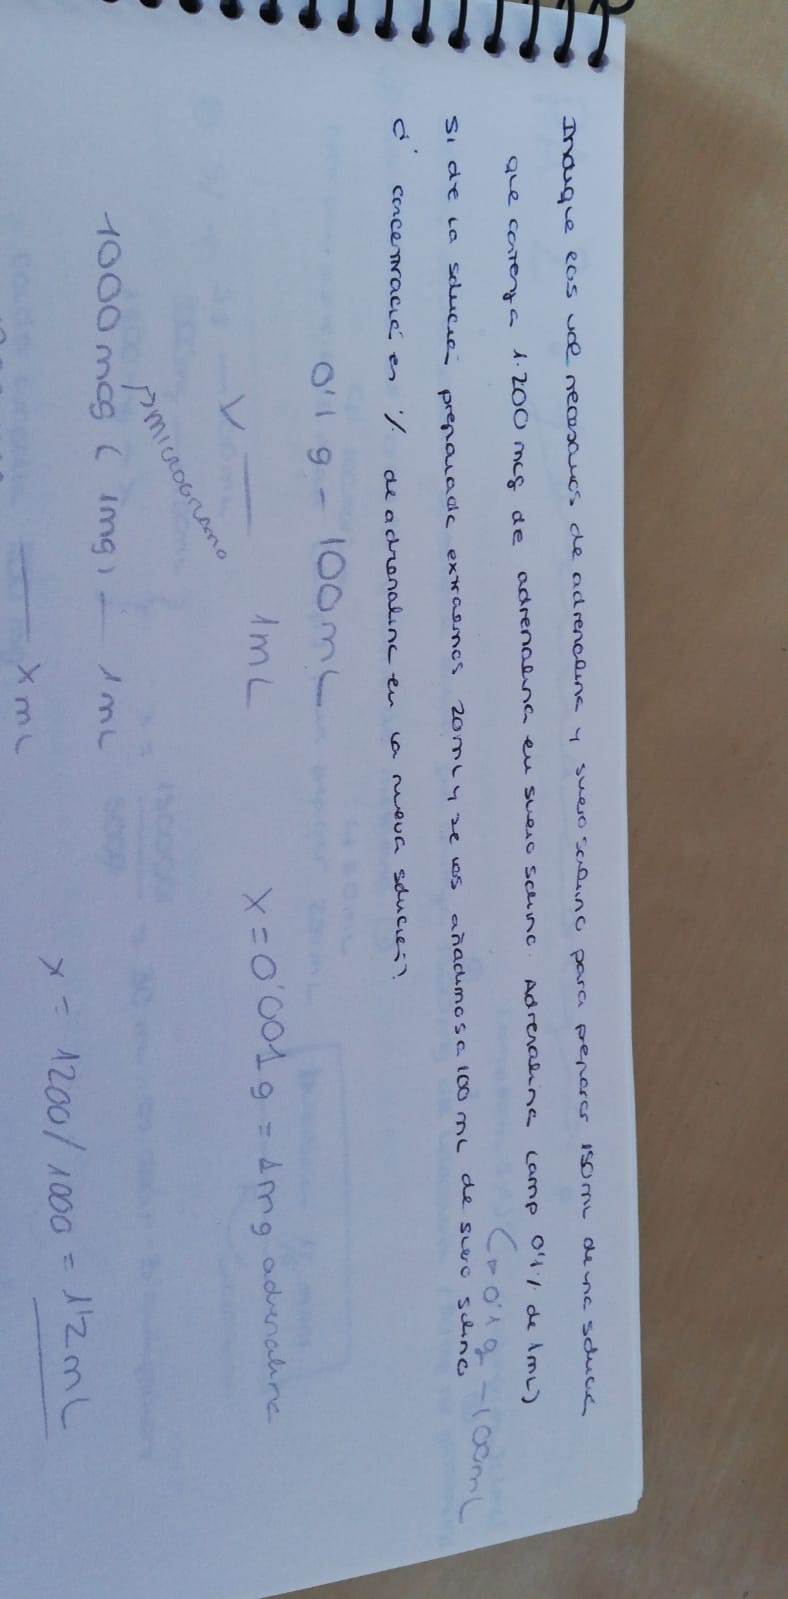 Indique los vol necesarios de adrenalina y suero salino para preparar 150mL de una solución
que contenga 1.200 mcg de adrenalina en suero salino. Adrenalina (amp 0'1% de 1mL)
(→ 0'1 g - 100mL
Si de la solución preparada extraemos 20mL y se los añadimos a 100 mL de suero salino
d' concentración en % de adrenalina en la nueva solución?
0'1 g - 100mL
X — 1mL x=0'001g = 1mg adrenalina
microgramo
1000 mcg ( 1mg) — 1mL
— x mL x = 1200/1000 = 1'2mL